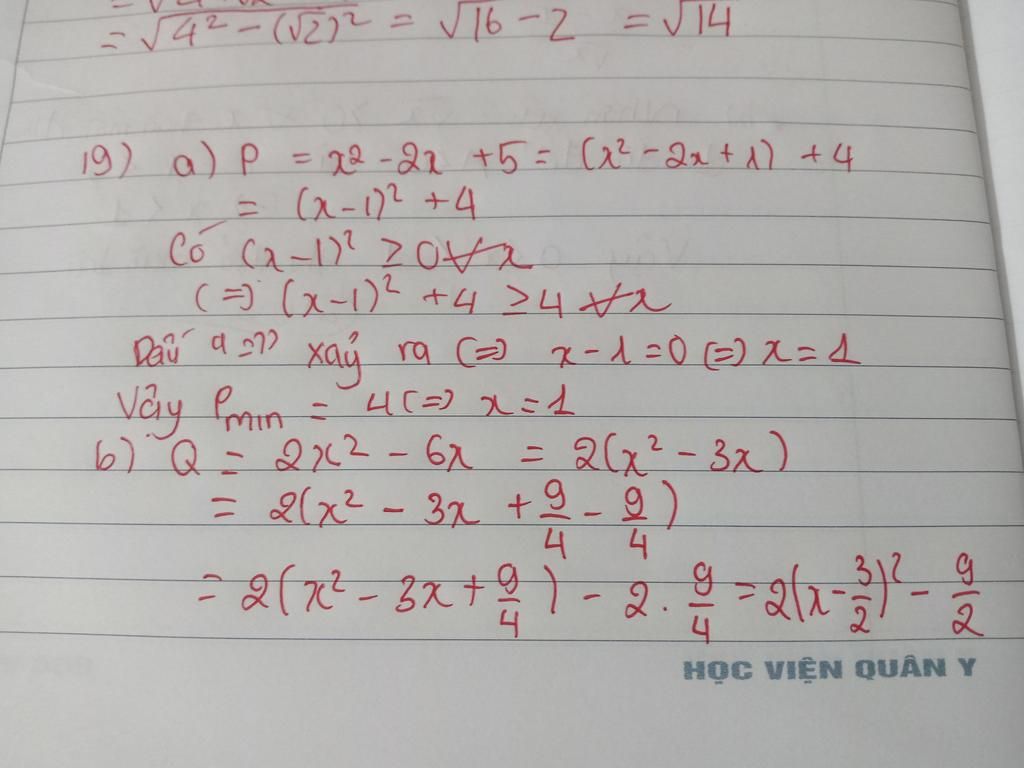 = √4² - (√2)² = √16 - 2 = √14
19) a) P = x² - 2x + 5 = (x² - 2x + 1) + 4
= (x - 1)² + 4
Có (x - 1)² ≥ 0 ∀x
(=) (x - 1)² + 4 ≥ 4 ∀x
Dấu "=" xảy ra (=) x - 1 = 0 (=) x = 1
Vậy Pmin = 4 (=) x = 1
b) Q = 2x² - 6x = 2(x² - 3x)
= 2(x² - 3x + 9/4 - 9/4)
= 2(x² - 3x + 9/4) - 2 . 9/4 = 2(x - 3/2)² - 9/2
HỌC VIỆN QUÂN Y